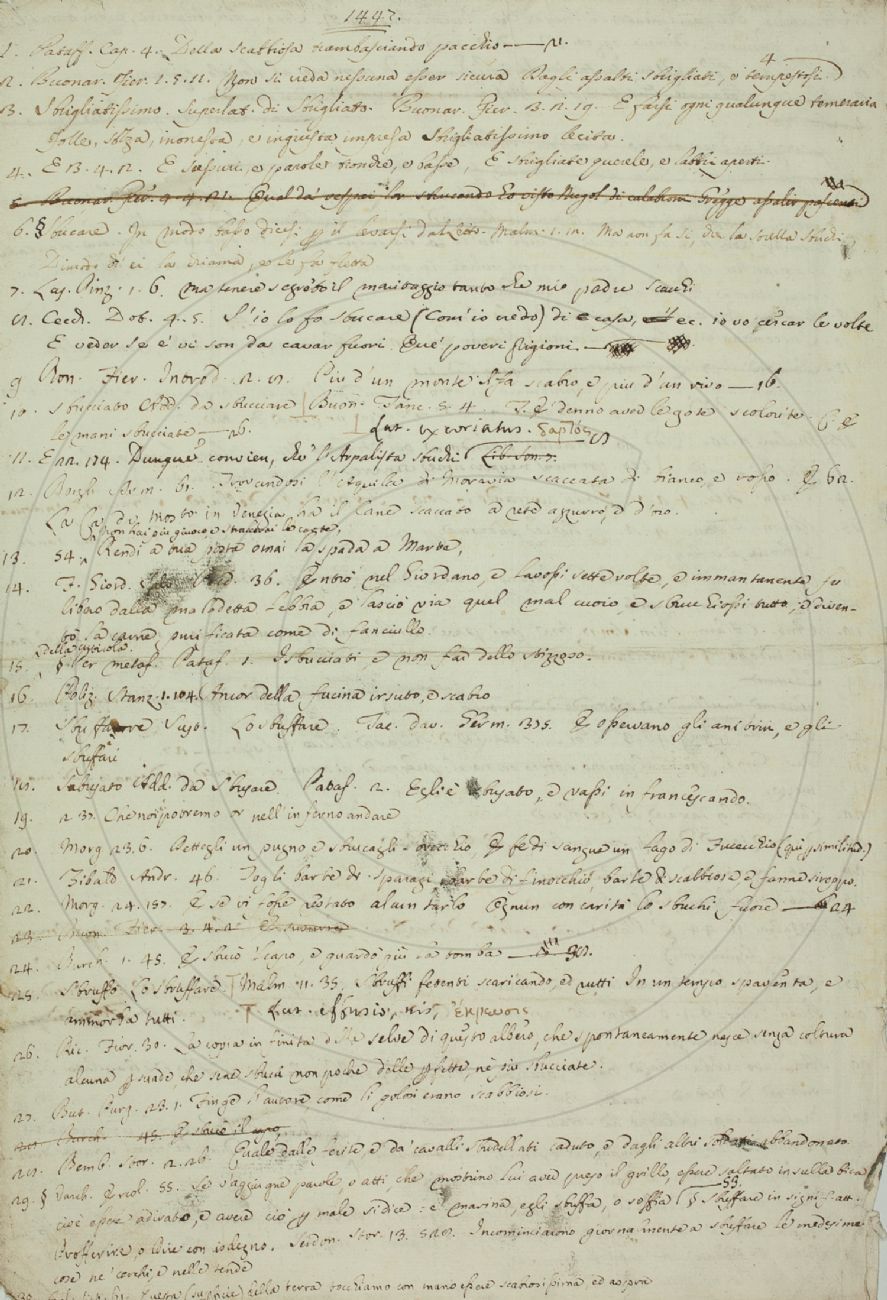 1447.
1. Pataff. Cap. 4. Della scabbiosa rambasciando pacchio
2. Buonar. Fier. 1. 5. 11. Non si veda nessuna esser sicura Dagli assalti sbrigliati, e tempestosi 4
3. Sbrigliatissimo. Superlat. di Sbrigliato. Buonar. Fier. 3. 2. 19. E farsi ogni qualunque temeraria
Folle, sozza, inonesta, e ingiusta impresa Sbrigliatissimo lecita.
4. E 3. 4. 12. E e parole tronche, e basse, E sbrigliate e aperti.
5. Buonar. Fier. 4. 4. 21. Qual da' vespai lor sbucando Ho visto stuol di calabroni Gregge assalir pascente
6. § Sbucare. In modo basso dicesi p il levarsi dal Letto. Malm. 1. 12. Ma non sa si, che la
ei la chiama, e le fa fretta
7. Las. Pinz. 1. 6. ma tenere segreto il maritaggio tanto che mio padre sbuchi
8. Cecch. Dot. 4. 5. S'io lo fo sbucare (Com'io credo) di casa, ec. io vo cercar le volte
E veder se e' vi son da cavar fuori Que' poveri prigioni
9 Bon. Fier. Introd. 2. Piu d'un monte scabro, e piu d'un rivo 16.
10. Sbucciato Add. da sbucciare Buon. Tanc. 5. 4. T. E' denno aver le gote scolorite E
le mani sbucciate Lat. excoriatus. δαρτός
11. E 22. 174. Dunque convien, che l'Arpalista sbuchi
12. Borgh. Arm. 61. Trovandosi l'Aquila di Moravia scaccata di bianco, e rosso. E 62.
La Ca da Mosto in Venezia ha il Cane scaccato a rete azzurro, e d'oro.
non hai piu giuoco, e straccerai le carte,
13. 54. Rendi a tua posta omai la spada a Marte,
14. F. Giord. 36. Entrò nel Giordano, e lavossi sette volte, e immantanente fu
libero dalla maladetta lebbra, e lasciò via quel mal cuoio, e sbucchiossi tutto, e diven-
tò la carne purificata come di fanciullo.
della
15. § Per metaf. Pataf. 1. Isbucciati e non far dello stizzoso.
16. Poliz. Stanz. 1. 104. Ancor della fucina irsuto, e scabro
17. Sbuffare Sust. Lo sbuffare. Tac. Dav. Germ. 375. E osservano gli anitrir, e gli
sbuffari
18. Sbusato Add. da Sbusare. Pataf. 2. Egli è sbusato, e vassi in francescando.
19. 2 37. Che noi potremo or nell'inferno andare
20. Morg 23. 6. Dettegli un pugno e sbucagli l'orecchio E fe di sangue un lago di Fucecchio (qui p similitud.)
21. Zibald. Andr. 46. Togli barbe di sparagi, barbe di finocchio, barbe di scabbiosa, e fanne sciroppo.
22. Morg. 24. 157. E se vi fosse restato alcun tarlo Ognun con carità lo sbuchi fuore 24
23. Buon. Fier. 3. 4. 2
24. Burch. 1. 45. E sbucò il capo, e guardò giù la tomba
25. Sbruffo. Lo sbruffare Malm. 11. 35. Sbruffi fetenti scaricando, ed rutti In un tempo spaventa, e
ammorba tutti. Lat. ἔκπτυσις
26. Ric. Fior. 30. La copia infinita delle selve di questo albero, che spontaneamente nasce senza coltura
alcuna, che sene sbuchi non poche delle pfette, nè sbucciate.
27. But. Purg. 23. 1. Finge l'autore come li golosi erano scabbiosi.
Burch. 45. E sbucò il capo
28. Bemb. Stor. 2. 26. Quale dalle ferite, e da' cavalli sbudellati caduto, e dagli altri soldati abbandonato.
29. § Varch. Ercol. 55. Se s'aggiugne parole o atti, che mostrino lui aver preso il grillo, essere saltato in sulla bica
cioè essere adirato, e avere ciò p male si dice: e' marina, egli sbuffa, o soffia § Sbuffare in signific. att.
Profferire, o Dire con isdegno. Serdon. Stor. 13. 528. Incominciarono giornalmente a sbuffare le medesime
cose ne' cerchi, e nelle tende
della terra tocchiamo con mano essere scabrosissima, ed aspra